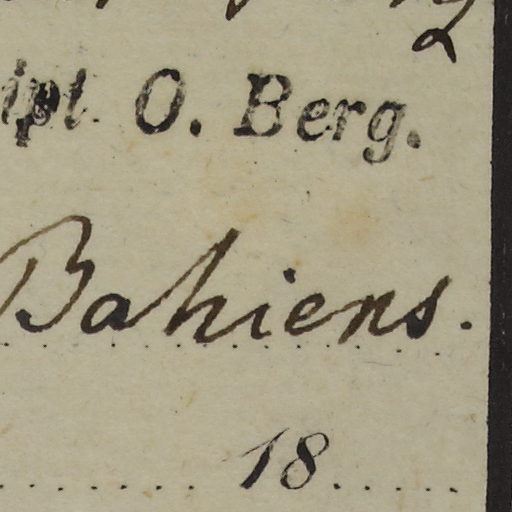 ipt. O. Berg.
Bahiens.
18